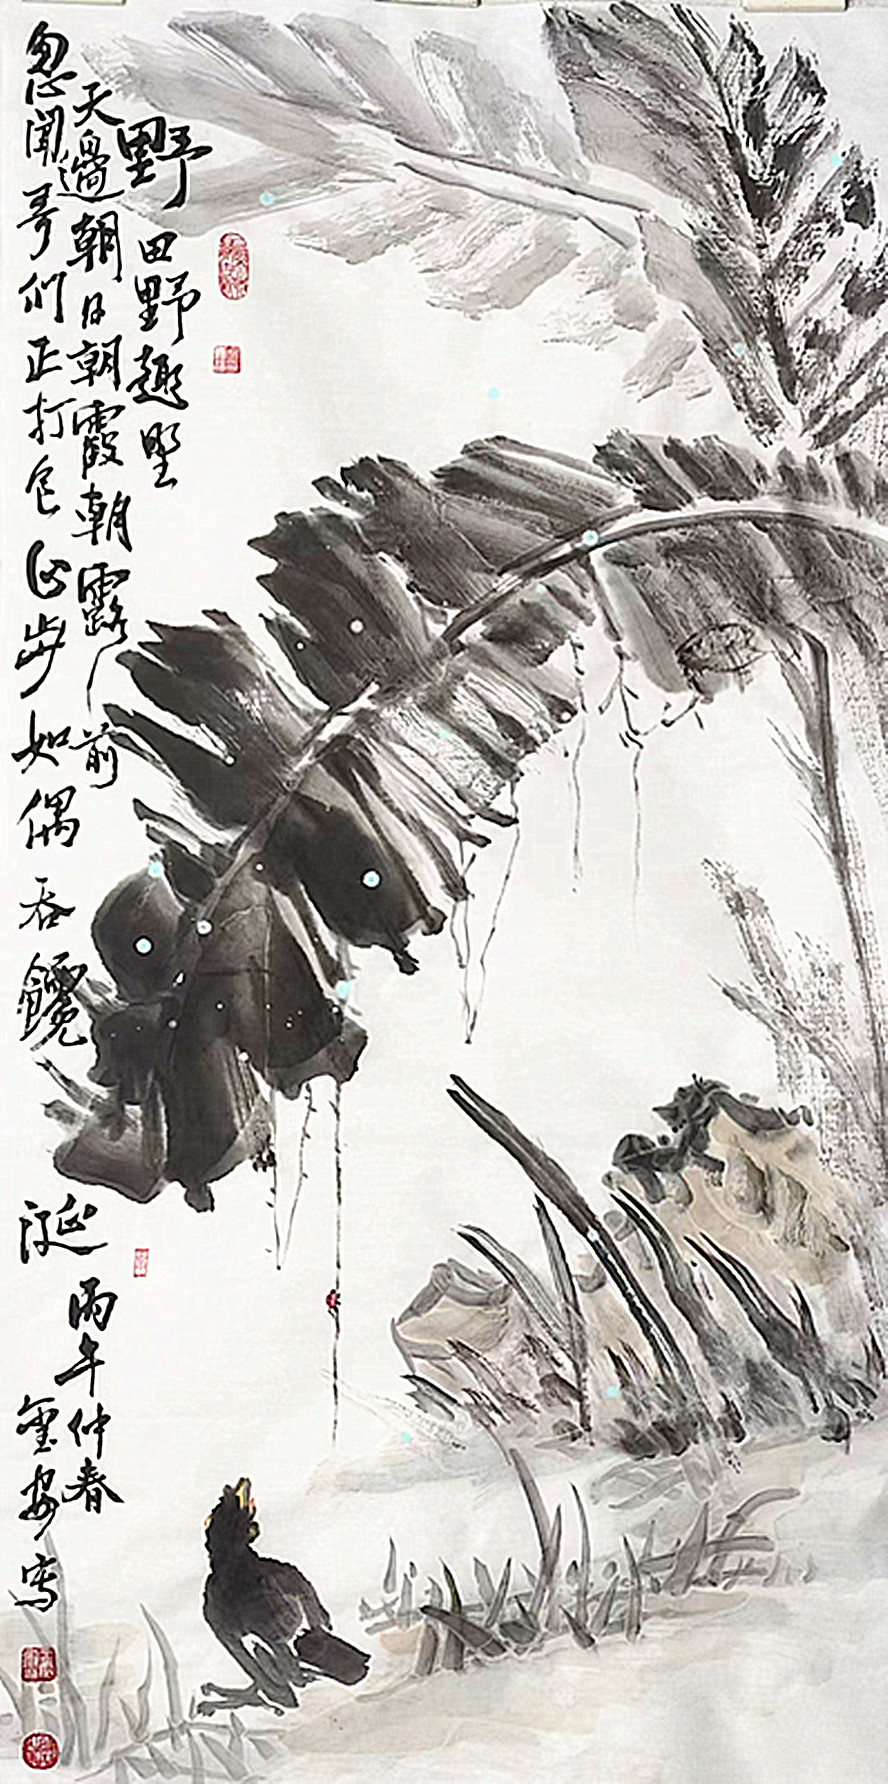 野田野趣
天邊朝日朝霞朝露前
忽闻哥们正打包止步如偶吞饞涎
丙午仲春
写